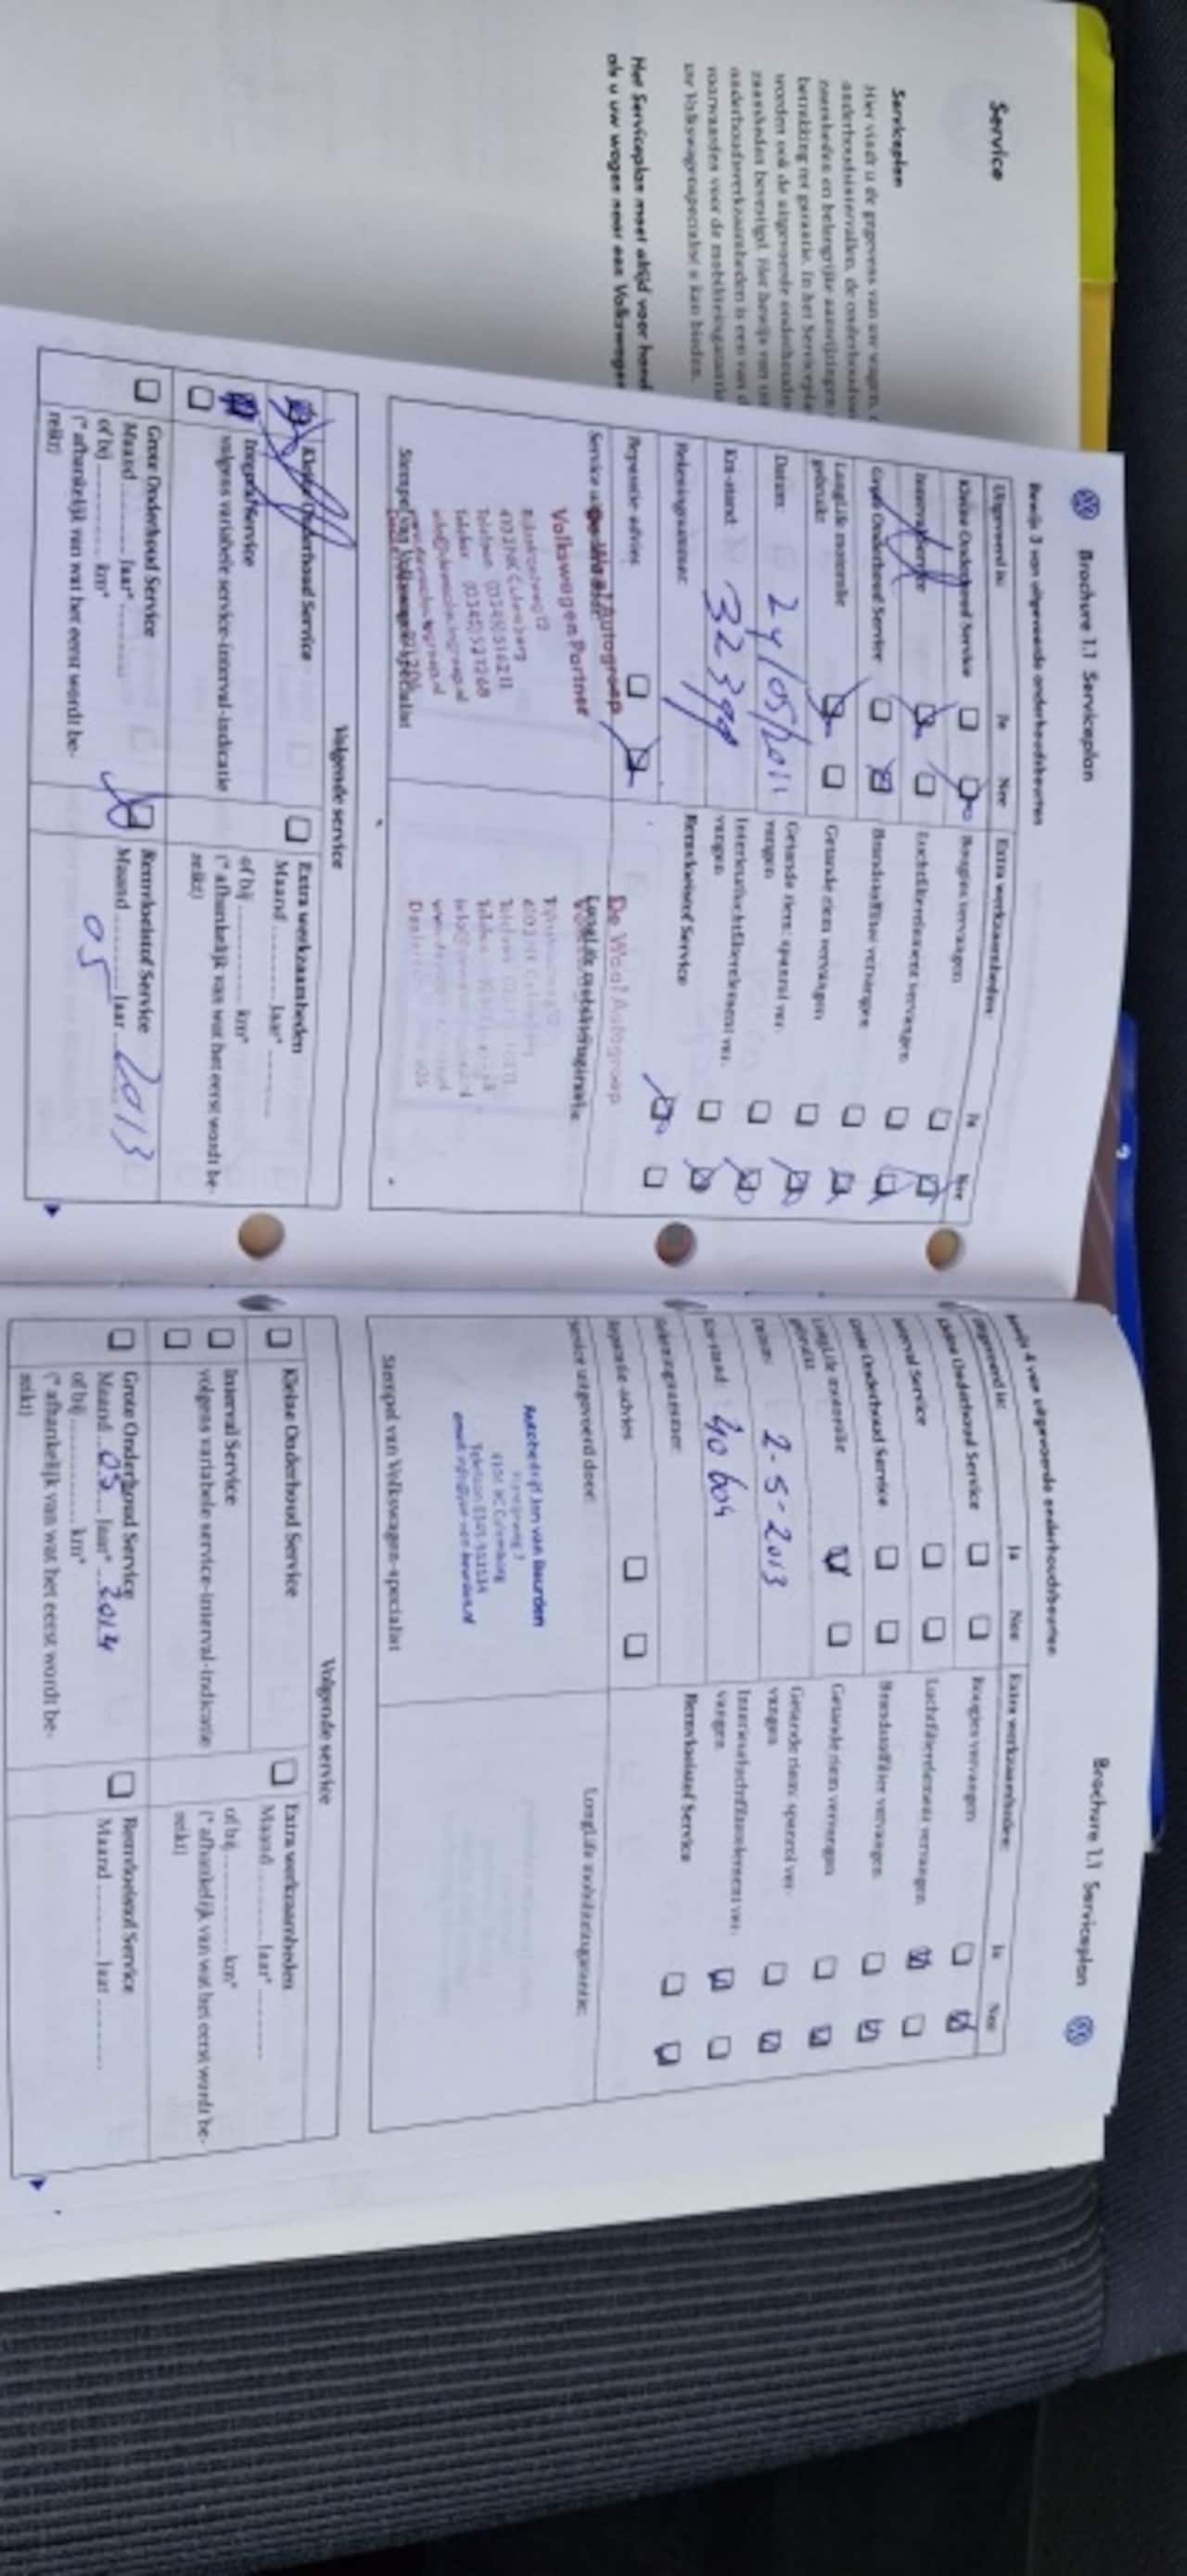 Service
Serviceplan
Hier vindt u de gegevens van uw wagen,
onderhoudsintervallen, de onderhouds
zaamheden en belangrijke aanwijzingen
betrekking tot garantie. In het Servicepla
worden ook de uitgevoerde onderhouds
zaamheden bevestigd. Het bewijs van
onderhoudswerkzaamheden is een van d
voorwaarden voor de mobiliteitsgarantie
uw Volkswagenspecialist u kan bieden.
Het Serviceplan moet altijd voor hand
als u uw wagen naar een Volkswagen
Brochure 1.1 Serviceplan
Bewijs 3 van uitgevoerde onderhoudsbeurten
Uitgevoerd is: Ja Nee
Kleine Onderhoud Service
Interval Service
Grote Onderhoud Service
LongLife motorolie
gebruikt
Datum: 24/05/2011
Km-stand: 32399
Rekeningnummer:
Reparatie-advies
Service uitgevoerd door:
De Waal Autogroep
Volkswagen Partner
Stempel van Volkswagen-specialist
Extra werkzaamheden: Ja Nee
Bougies vervangen
Luchtfilterelement vervangen
Brandstoffilter vervangen
Getande riem vervangen
Getande riem: spanrol ver-
vangen
Interieurluchtfilterelement ver-
vangen
Remvloeistof Service
LongLife mobiliteitsgarantie:
De Waal Autogroep
Volgende service
Kleine Onderhoud Service
Interval Service
volgens variabele service-interval-indicatie
Grote Onderhoud Service
Maand ........ Jaar* ........
of bij ............ km*
(* afhankelijk van wat het eerst wordt be-
reikt)
Extra werkzaamheden
Maand ........ Jaar* ........
of bij ............ km*
(* afhankelijk van wat het eerst wordt be-
reikt)
Remvloeistof Service
Maand 05 Jaar 2013
Brochure 1.1 Serviceplan
Bewijs 4 van uitgevoerde onderhoudsbeurten
Uitgevoerd is: Ja Nee
Kleine Onderhoud Service
Interval Service
Grote Onderhoud Service
LongLife motorolie
gebruikt
Datum: 2-5-2013
Km-stand: 40604
Rekeningnummer:
Reparatie-advies
Service uitgevoerd door:
Autobedrijf Jan van Beurden
Stempel van Volkswagen-specialist
Extra werkzaamheden: Ja Nee
Bougies vervangen
Luchtfilterelement vervangen
Brandstoffilter vervangen
Getande riem vervangen
Getande riem: spanrol ver-
vangen
Interieurluchtfilterelement ver-
vangen
Remvloeistof Service
LongLife mobiliteitsgarantie:
Volgende service
Kleine Onderhoud Service
Interval Service
volgens variabele service-interval-indicatie
Grote Onderhoud Service
Maand 05 Jaar* 2014
of bij ............ km*
(* afhankelijk van wat het eerst wordt be-
reikt)
Extra werkzaamheden
Maand ........ Jaar* ........
of bij ............ km*
(* afhankelijk van wat het eerst wordt be-
reikt)
Remvloeistof Service
Maand ........ Jaar ........